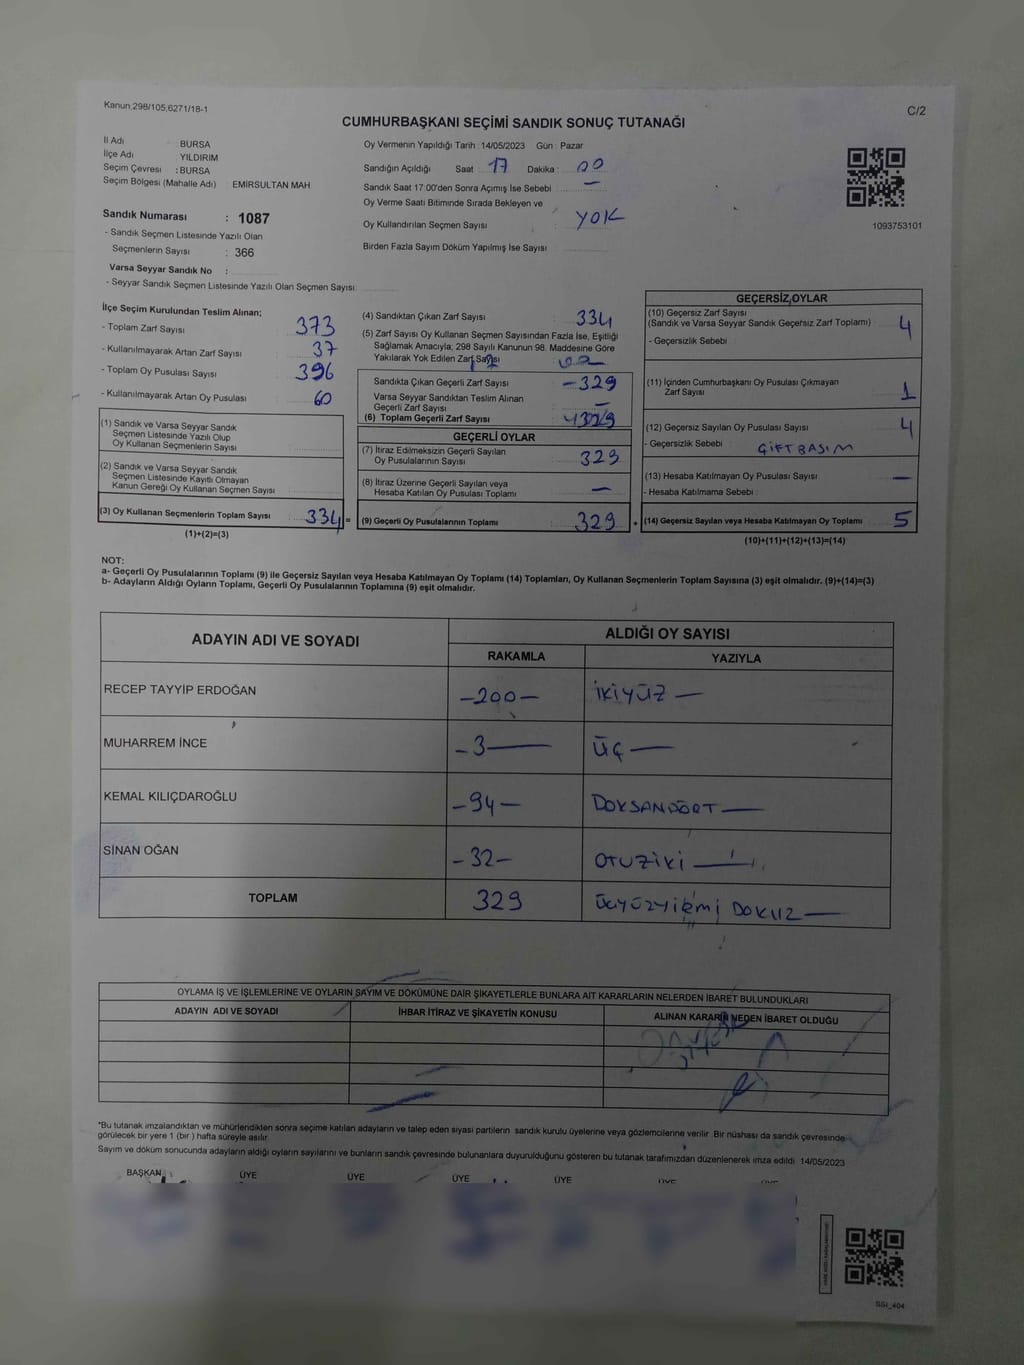 Kanun,298/105,6271/18-1
C/2
CUMHURBAŞKANI SEÇİMİ SANDIK SONUÇ TUTANAĞI
İl Adı : BURSA
İlçe Adı : YILDIRIM
Seçim Çevresi : BURSA
Seçim Bölgesi (Mahalle Adı) : EMİRSULTAN MAH
Sandık Numarası : 1087
- Sandık Seçmen Listesinde Yazılı Olan
Seçmenlerin Sayısı : 366
Varsa Seyyar Sandık No :
- Seyyar Sandık Seçmen Listesinde Yazılı Olan Seçmen Sayısı:
Oy Vermenin Yapıldığı Tarih : 14/05/2023 Gün : Pazar
Sandığın Açıldığı Saat : 17 Dakika : 00
Sandık Saat 17.00'den Sonra Açımış İse Sebebi : —
Oy Verme Saati Bitiminde Sırada Bekleyen ve
Oy Kullandırılan Seçmen Sayısı : YOK
Birden Fazla Sayım Döküm Yapılmış İse Sayısı :
1093753101
İlçe Seçim Kurulundan Teslim Alınan;
- Toplam Zarf Sayısı : 373
- Kullanılmayarak Artan Zarf Sayısı : 37
- Toplam Oy Pusulası Sayısı : 396
- Kullanılmayarak Artan Oy Pusulası : 60
(1) Sandık ve Varsa Seyyar Sandık
Seçmen Listesinde Yazılı Olup
Oy Kullanan Seçmenlerin Sayısı :
(2) Sandık ve Varsa Seyyar Sandık
Seçmen Listesinde Kayıtlı Olmayan
Kanun Gereği Oy Kullanan Seçmen Sayısı :
(3) Oy Kullanan Seçmenlerin Toplam Sayısı : 334 =
(1)+(2)=(3)
(4) Sandıktan Çıkan Zarf Sayısı : 334
(5) Zarf Sayısı Oy Kullanan Seçmen Sayısından Fazla İse, Eşitliği
Sağlamak Amacıyla, 298 Sayılı Kanunun 98. Maddesine Göre
Yakılarak Yok Edilen Zarf Sayısı :
Sandıkta Çıkan Geçerli Zarf Sayısı : -329
Varsa Seyyar Sandıktan Teslim Alınan
Geçerli Zarf Sayısı : —
(6) Toplam Geçerli Zarf Sayısı :
GEÇERLİ OYLAR
(7) İtiraz Edilmeksizin Geçerli Sayılan
Oy Pusulalarının Sayısı : 329
(8) İtiraz Üzerine Geçerli Sayılan veya
Hesaba Katılan Oy Pusulası Toplamı : —
(9) Geçerli Oy Pusulalarının Toplamı : 329 +
GEÇERSİZ OYLAR
(10) Geçersiz Zarf Sayısı
(Sandık ve Varsa Seyyar Sandık Geçersiz Zarf Toplamı) : 4
- Geçersizlik Sebebi :
(11) İçinden Cumhurbaşkanı Oy Pusulası Çıkmayan
Zarf Sayısı : 1
(12) Geçersiz Sayılan Oy Pusulası Sayısı : 4
- Geçersizlik Sebebi : ÇİFT BASIM
(13) Hesaba Katılmayan Oy Pusulası Sayısı : —
- Hesaba Katılmama Sebebi :
(14) Geçersiz Sayılan veya Hesaba Katılmayan Oy Toplamı : 5
(10)+(11)+(12)+(13)=(14)
NOT:
a- Geçerli Oy Pusulalarının Toplamı (9) ile Geçersiz Sayılan veya Hesaba Katılmayan Oy Toplamı (14) Toplamları, Oy Kullanan Seçmenlerin Toplam Sayısına (3) eşit olmalıdır. (9)+(14)=(3)
b- Adayların Aldığı Oyların Toplamı, Geçerli Oy Pusulalarının Toplamına (9) eşit olmalıdır.
ADAYIN ADI VE SOYADI ALDIĞI OY SAYISI
RAKAMLA YAZIYLA
RECEP TAYYİP ERDOĞAN -200- İKİYÜZ —
MUHARREM İNCE -3— ÜÇ —
KEMAL KILIÇDAROĞLU -94- DOKSANDÖRT —
SİNAN OĞAN -32- OTUZİKİ —
TOPLAM 329 ÜÇYÜZYİRMİ DOKUZ —
OYLAMA İŞ VE İŞLEMLERİNE VE OYLARIN SAYIM VE DÖKÜMÜNE DAİR ŞİKAYETLERLE BUNLARA AİT KARARLARIN NELERDEN İBARET BULUNDUKLARI
ADAYIN ADI VE SOYADI İHBAR İTİRAZ VE ŞİKAYETİN KONUSU ALINAN KARARIN NEDEN İBARET OLDUĞU
*Bu tutanak imzalandıktan ve mühürlendikten sonra seçime katılan adayların ve talep eden siyasi partilerin sandık kurulu üyelerine veya gözlemcilerine verilir. Bir nüshası da sandık çevresinde
görülecek bir yere 1 (bir) hafta süreyle asılır.
Sayım ve döküm sonucunda adayların aldığı oyların sayılarını ve bunların sandık çevresinde bulunanlara duyurulduğunu gösteren bu tutanak tarafımızdan düzenlenerek imza edildi. 14/05/2023
BAŞKAN ÜYE ÜYE ÜYE ÜYE ÜYE ÜYE
SSI_404